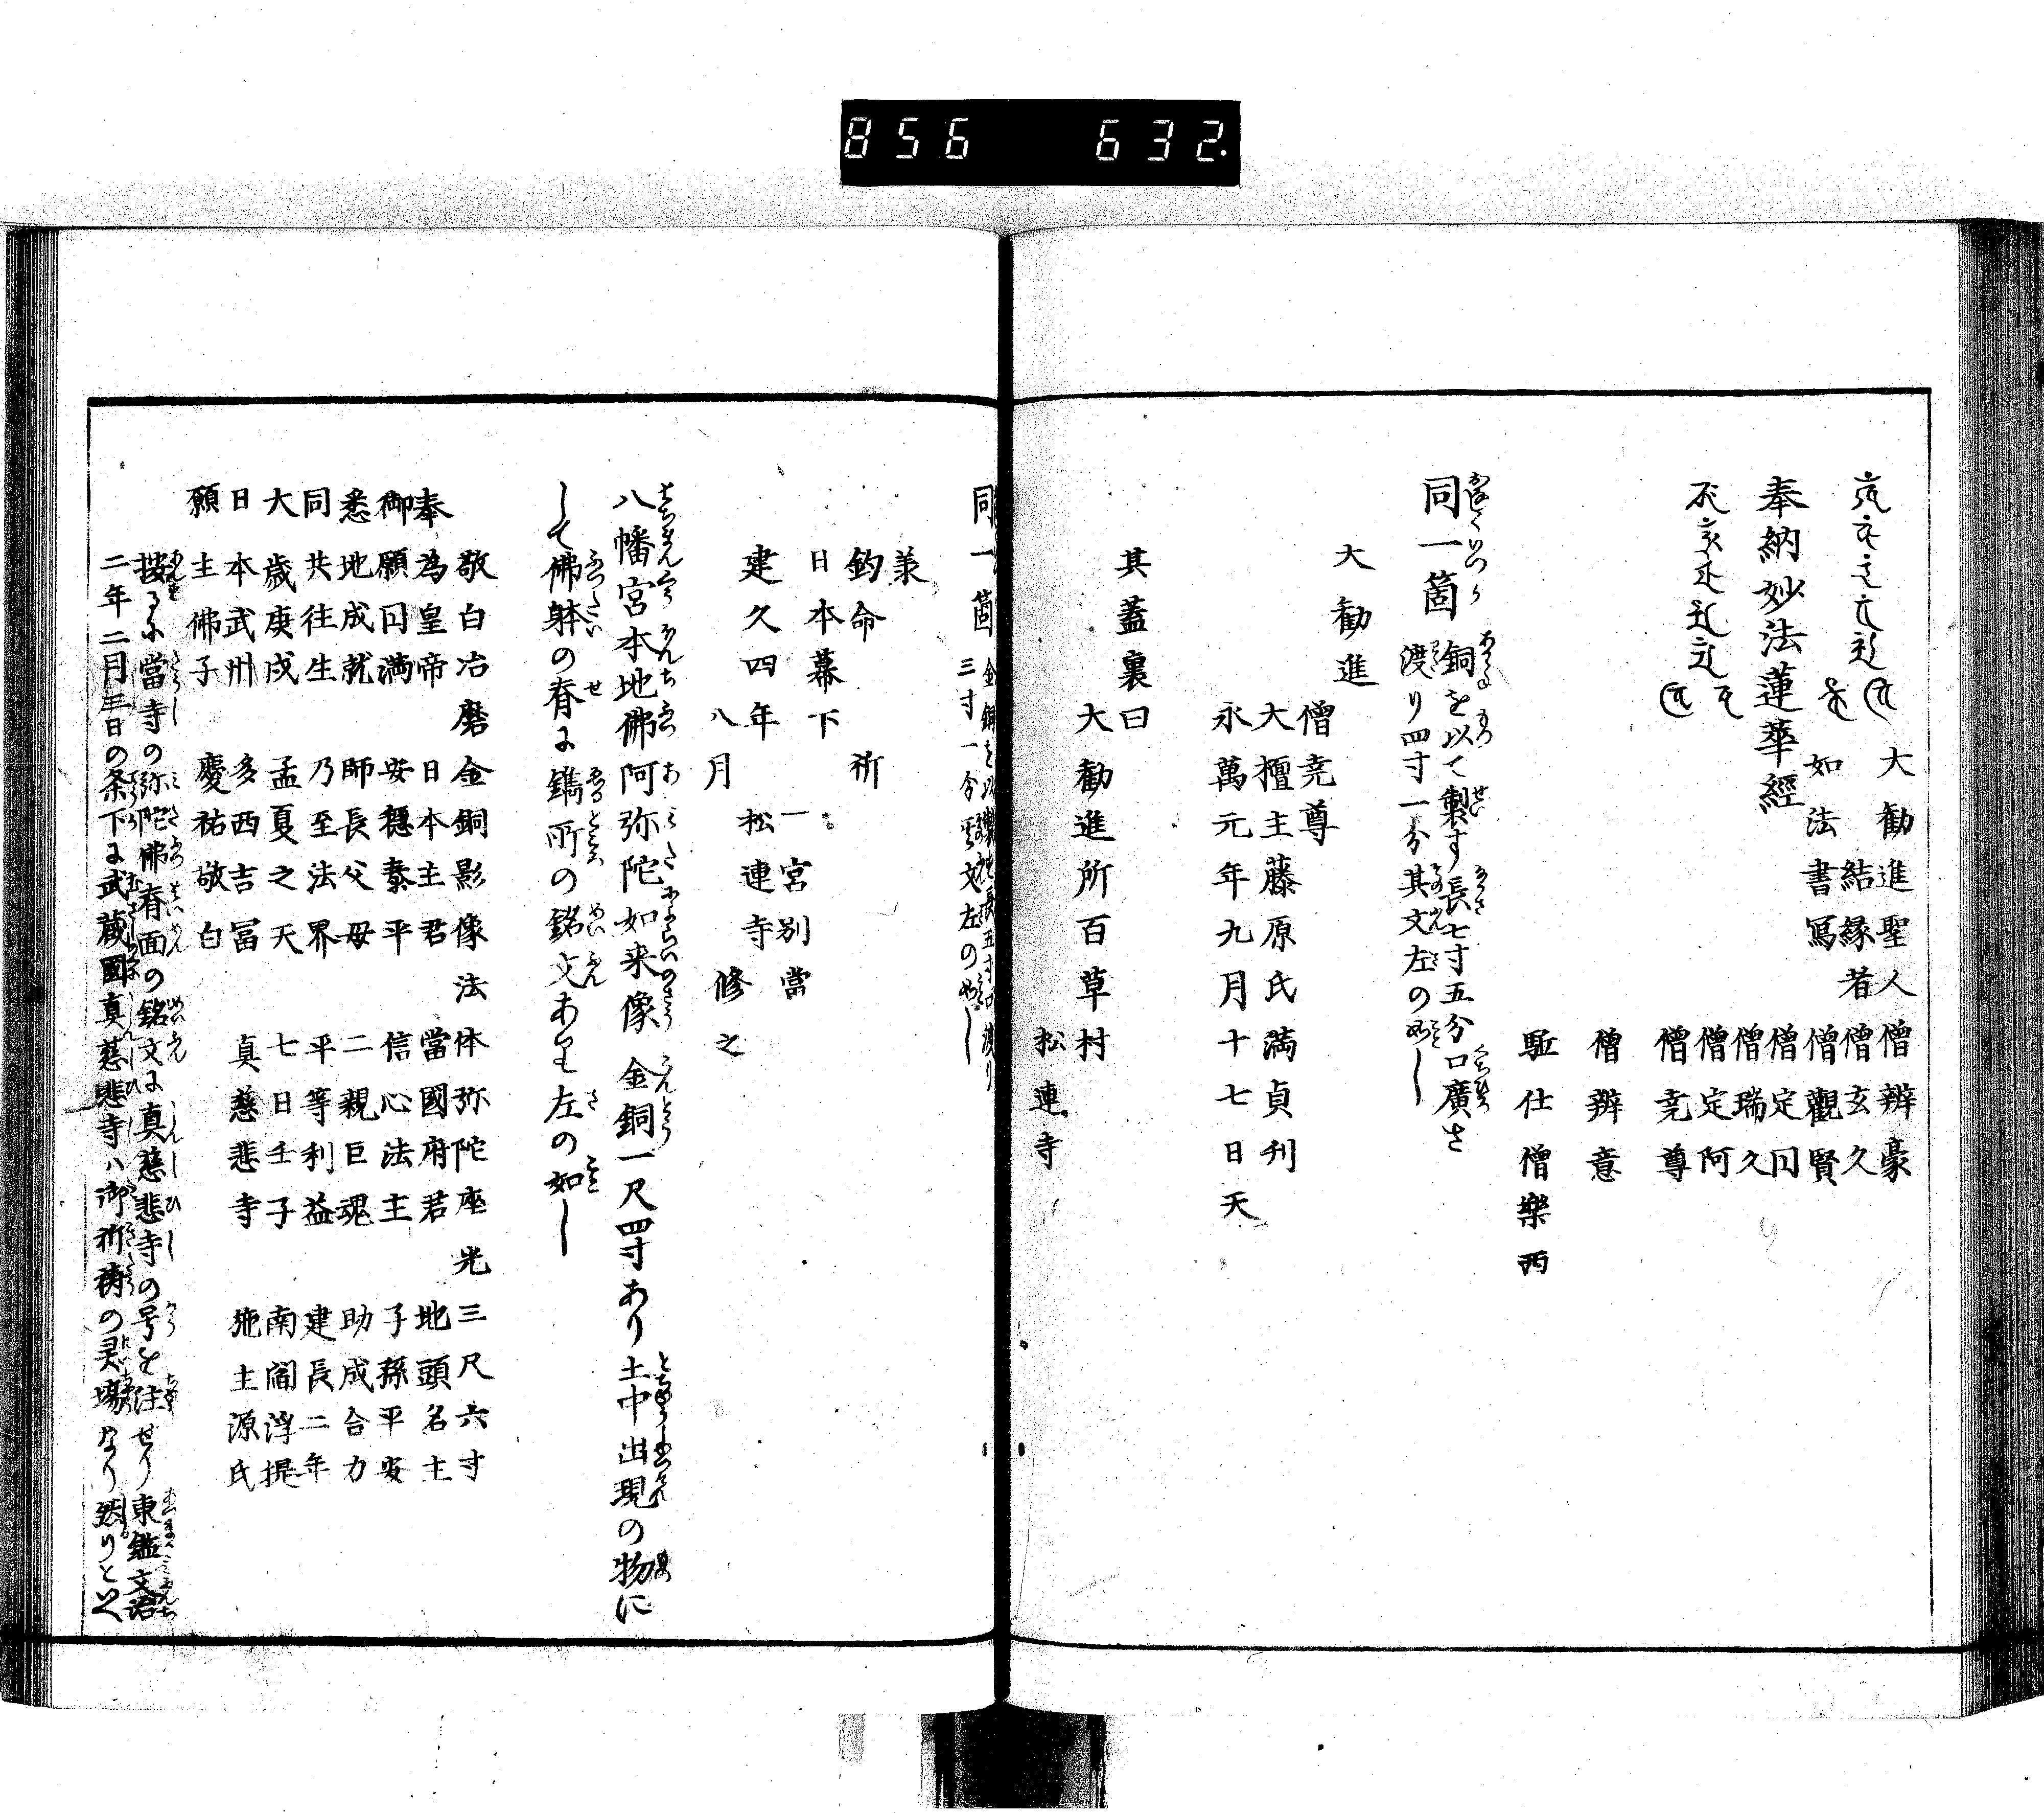 856 632.
大勧進聖人 僧辨豪
結縁者 僧玄久
如法書写 僧觀賢
奉納妙法蓮華經
僧定円
僧瑞久
僧定阿
僧尭尊
僧辨意
駈仕僧樂西
同一箇 銅を以て製す長七寸五分口廣さ
渡り四寸一分其文左の如し
大勧進
僧尭尊
大檀主藤原氏満貞利
永萬元年九月十七日天
其蓋裏曰
大勧進所百草村
松連寺
同一箇 金銅を以製す長五寸口渡り
三寸一分 文左の如し
羕
鈞命 祈
日本幕下
一宮別當
建久四年 松連寺
八月 修之
八幡宮本地佛阿弥陀如来像 金銅一尺四寸あり土中出現の物に
して佛躰の脊に鐫所の銘文あり左の如し
敬白冶磨金銅影像法体弥陀座光三尺六寸
奉為皇帝 日本主君 當國府君 地頭名主
御願円満 安穏泰平 信心法主 子孫平安
悉地成就 師長父母 二親巨魂 助成合力
同共往生 乃至法界 平等利益 建長二年
大歳庚戌 孟夏之天 七日壬子 南閻浮提
日本武州 多西吉冨 真慈悲寺 施主源氏
願主佛子 慶祐敬白
按るに當寺の弥陀佛脊面の銘文に真慈悲寺の号を注せり東鑑文治
二年二月三日の条下に武蔵國真慈悲寺ハ御祈祷の灵場なり然りといへ